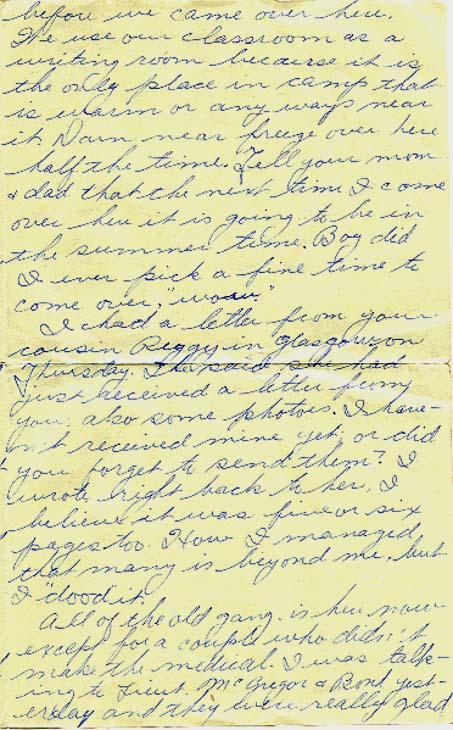 before we came over here.
We use our classroom as a
writing room because it is
the only place in camp that
is warm or any ways near
it. Darn near freeze over here
half the time. Tell your mom
& dad that the next time I come
over here it is going to be in
the summer time. Boy did
I ever pick a fine time to
come over, "wow."
I had a letter from your
cousin Peggy in Glasgow on
Thursday. She said she had
just received a letter from
you, also some photos. I have-
n't received mine yet, or did
you forget to send them? I
wrote right back to her, I
believe it was five or six
pages too. How I managed
that many is beyond me, but
I "dood" it.
All of the old gang is here now
except for a couple who didn't
make the medical. I was talk-
ing to Lieut. McGregor & Bond yest-
erday and they were really glad